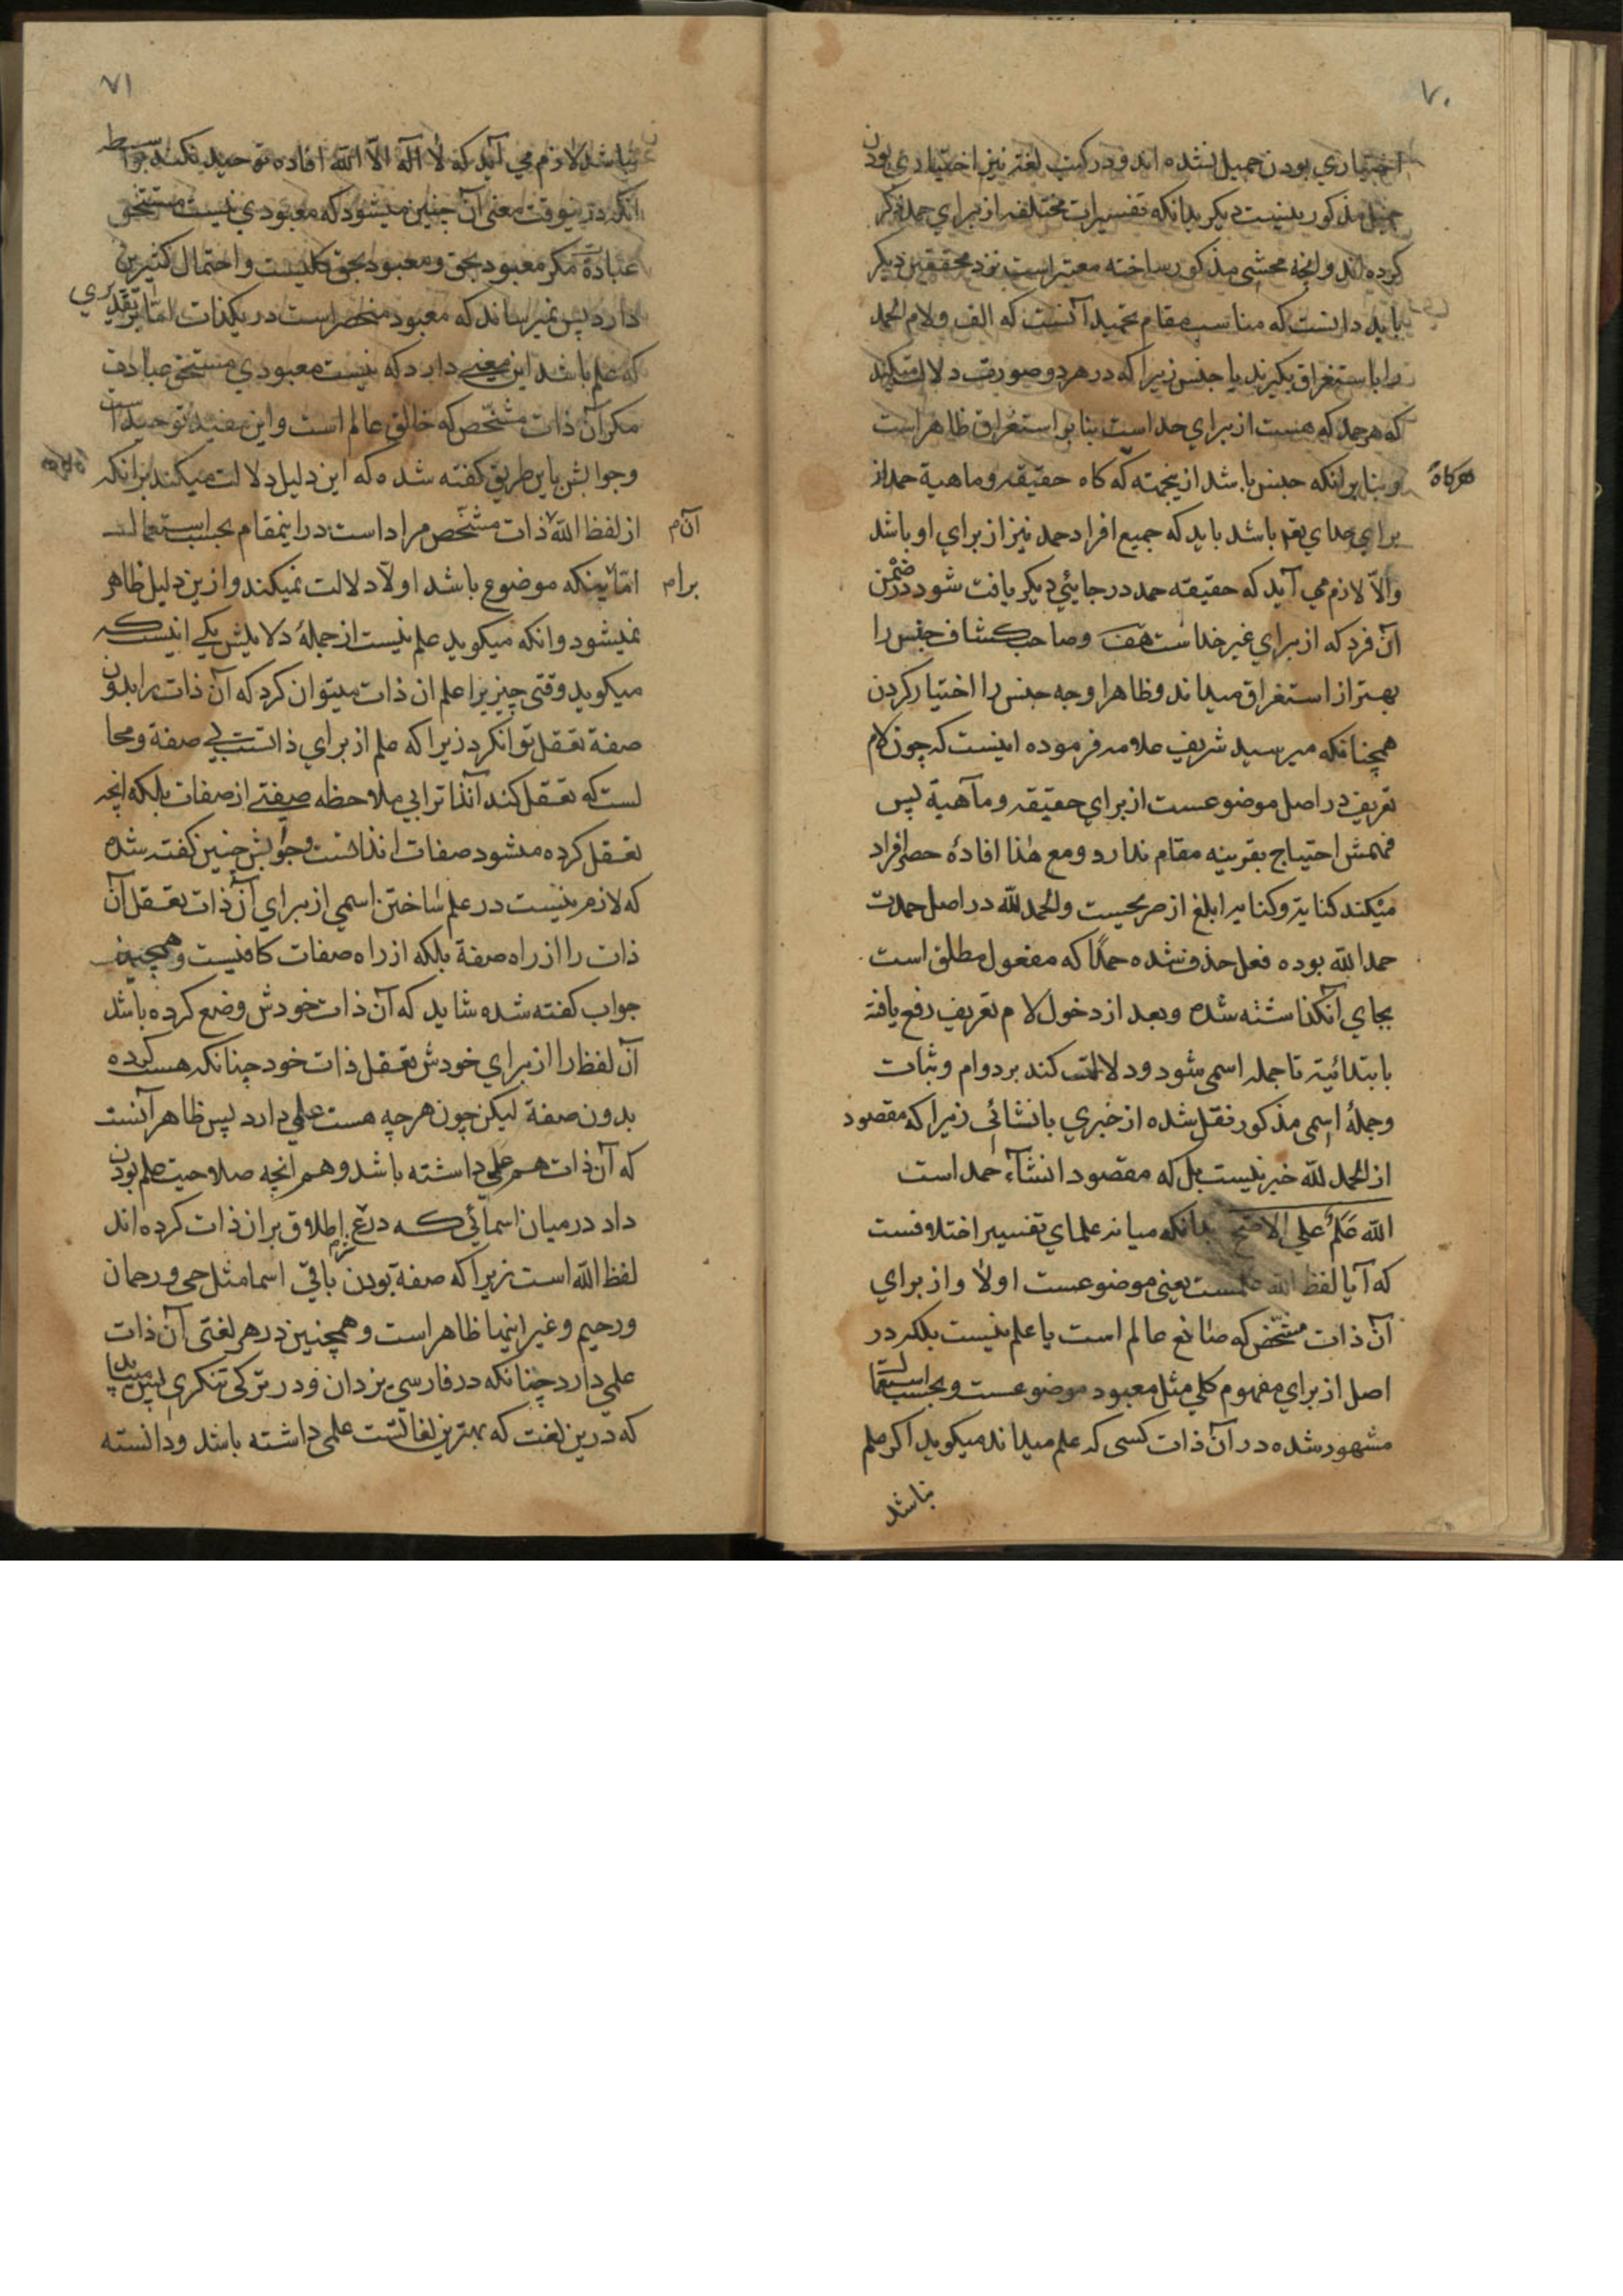 ٧٠
اختیاري بودن جمیل نشده اند و در کتب لغة نیز اختیاري بودن
جمیل مذکور نیست دیکر بدانکه تفسیرات مختلفه از براي حمد ذکر
کرده اند و انچه محشي مذکور ساخته معتبر است نزد محققین دیکر
باید دانست که مناسب مقام تحمید آنست که الف و لام الحمد
را باستغراق بکیرند یا جنس زیرا که در هر دو صورت دلالت میکند
که هر حمد که هست از براي خداست بنا بر استغراق ظاهر است
و بنا بر انکه جنس باشد از یجهته که کاه حقیقه و ماهیة حمد از
هرکاه
براي خداي تع باشد باید که جمیع افراد حمد نیز از براي او باشد
والّا لازم مي آید که حقیقه حمد در جائي دیکر یافت شود در ضمن
آن فرد که از براي غیر خداست هف و صاحب کشاف جنس را
بهتر از استغراق میداند و ظاهرا وجه جنس را اختیار کردن
همچنانکه میر سید شریف علامه فرموده اینست که چون لام
تعریف در اصل موضوعست از براي حقیقه و ماهیة پس
فهمش احتیاج بقرینه مقام ندارد و مع هذا افادهٔ حصر افراد
میکند کنایة و کنایه ابلغ از صریحست و الحمد لله در اصل حمدت
حمدا لله بوده فعل حذف شده حمدًا که مفعول مطلق است
بجاي آن کذاشته شده و بعد از دخول لام تعریف رفع یافته
بابتدائیة تا جمله اسمي شود و دلالت کند بر دوام و ثبات
و جملهٔ اسمي مذکور نقل شده از خبري بانشائي زیرا که مقصود
از الحمد لله خبر نیست بل که مقصود انشآء حمد است
الله عَلَمٌ علي الاصح بدانکه میانه علماي تفسیر اختلافست
که آیا لفظ الله علمست یعني موضوعست اولا و از براي
آن ذات مشخّص که صانع عالم است یا علم نیست بلکه در
اصل از براي مفهوم کلي مثل معبود موضوعست و بحسب استعمال
مشهور شده در آن ذات کسي که علم میداند میکوید اکر علم
نباشد
٧١
نباشد لازم مي آید که لا اله الّا الله افاده توحید نکند بواسطه
انکه درینوقت معني آن چنین میشود که معبودي نیست مستحق
عبادة مکر معبود بحق و معبود بحق کلیست و احتمال کثیرین
دارد پس نمیرساند که معبود منحصر است در یکذات امّا بر تقدیري
که علم باشد این معني دارد که نیست معبودي مستحق عبادت
مکر آن ذات مشخّص که خالق عالم است و این مفید توحید است
و جوابش باین طریق کفته شده که این دلیل دلالت میکند برانکه
از لفظ الله ذات مشخّص مراد است در اینمقام بحسب استعمال
آن م
امّا اینکه موضوع باشد اولا دلالت نمیکند و ازین دلیل ظاهر
برا م
نمیشود و انکه میکوید علم نیست از جملهٔ دلایلش یکي اینست که
میکوید وقتي چیزیرا علم ان ذات میتوان کرد که آن ذات را بدون
صفة تعقل توانکرد زیرا که علم از براي ذاتست بي صفة و محا
لست که تعقل کند آنذات را بي ملاحظه صفتي از صفات بلکه انچه
تعقل کرده میشود صفات انذاتست و جوابش چنین کفته شده
که لازم نیست در علم ساختن اسمي از براي آن ذات تعقل آن
ذات را از راه صفة بلکه از راه صفات کافیست و همچنین
جواب کفته شده شاید که آن ذات خودش وضع کرده باشد
آن لفظ را از براي خودش تعقل ذات خود چنانکه هست کرده
بدون صفة لیکن چون هر چه هست علمي دارد پس ظاهر آنست
که آن ذات هم علمي داشته باشد و هم انچه صلاحیت علم بودن
داد در میان اسمائي که در ع اطلاق بر ان ذات کرده اند
لفظ الله است زیرا که صفة بودن باقي اسما مثل حي و رحمان
و رحیم و غیر اینها ظاهر است و همچنین در هر لغتي آن ذات
علمي دارد چنانکه در فارسي یزدان و در ترکي تنکري پس میباید
که درین لغت که بهترین لغاتست علمي داشته باشد و دانسته